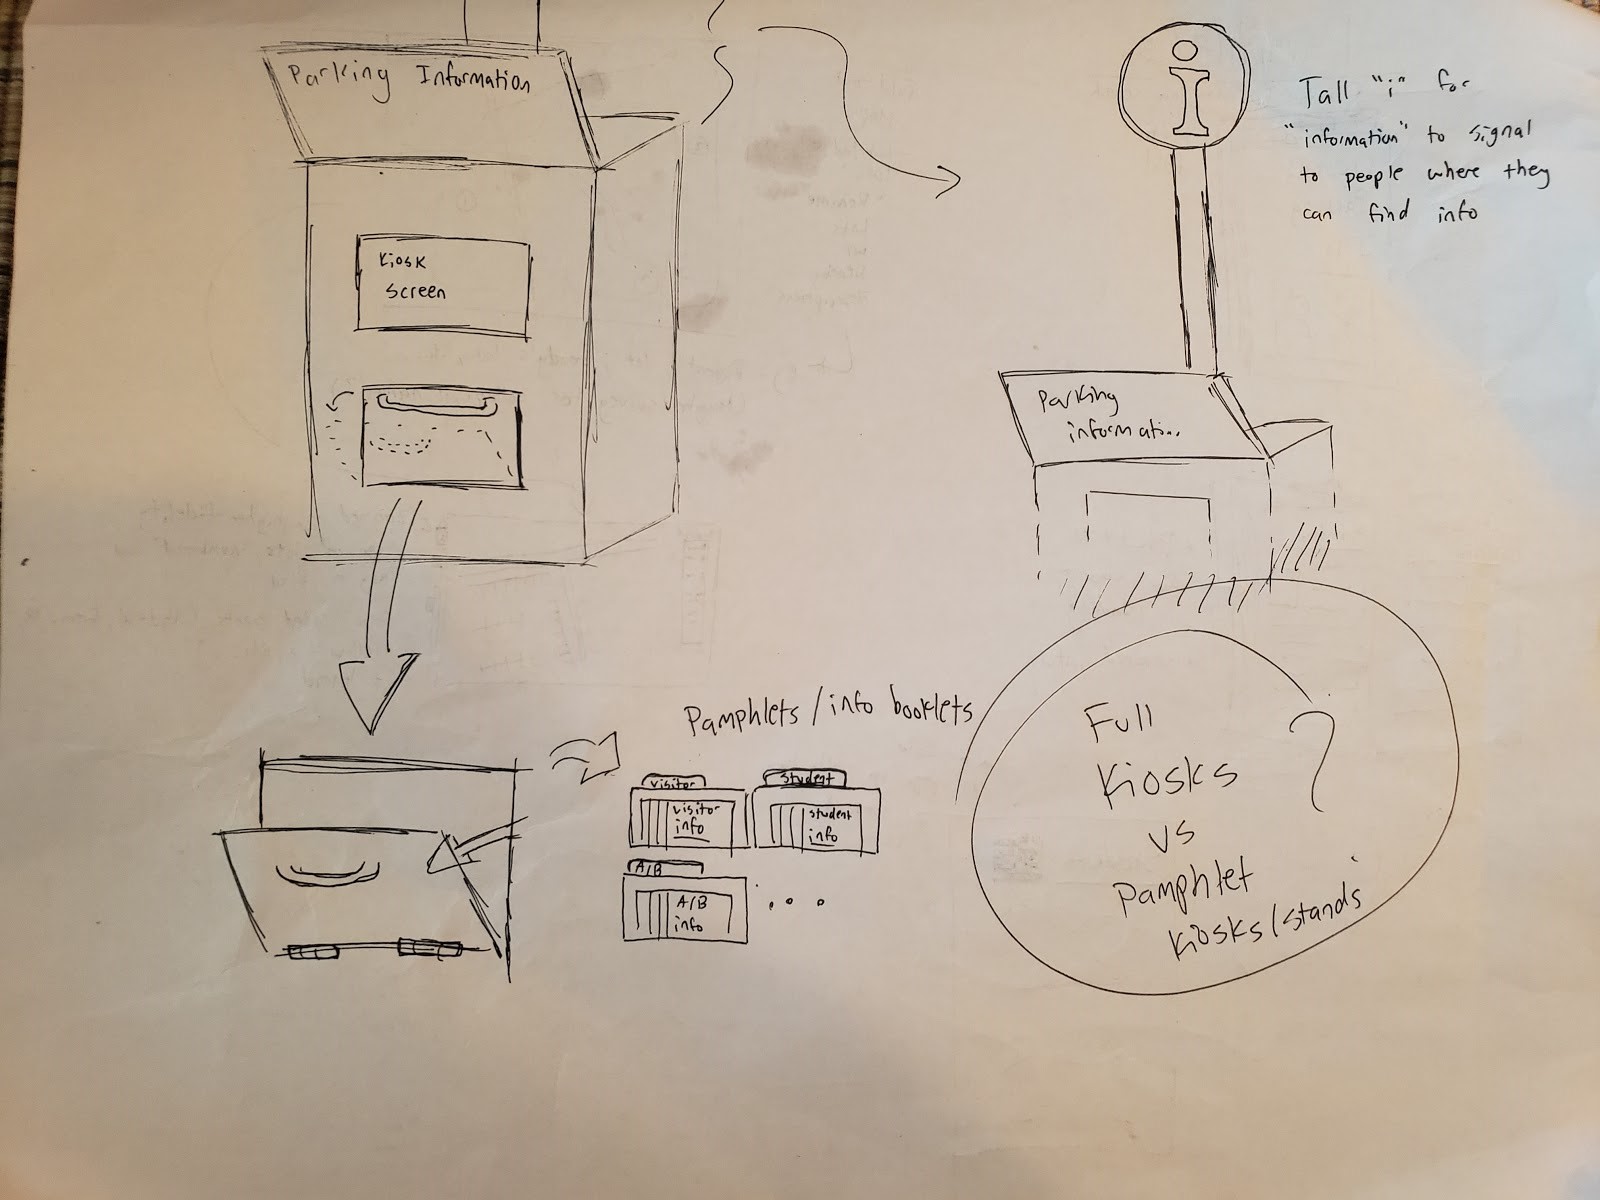 Parking Information
Kiosk
Screen
i
Tall "i" for
"information" to signal
to people where they
can find info
Parking
informati...
Pamphlets/info booklets
Visitor
visitor
info
Student
student
info
A/B
A/B
info
...
Full
Kiosks
vs
Pamphlet
Kiosks/stands
?